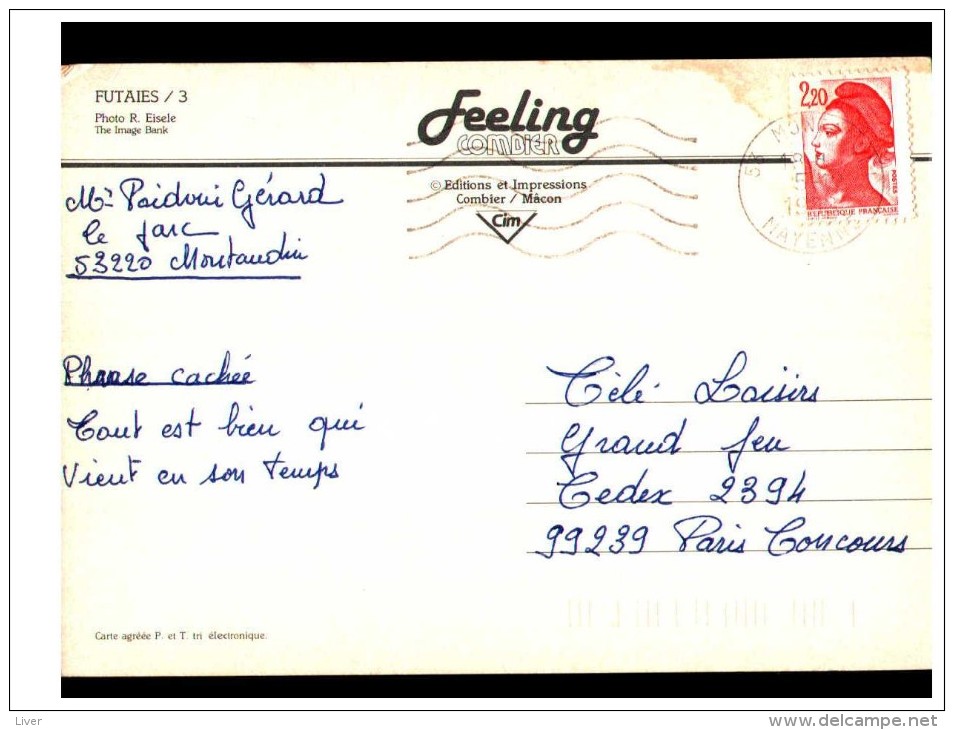 FUTAIES / 3
Photo R. Eisele
The Image Bank
Feeling
COMBIER
© Editions et Impressions
Combier / Mâcon
Cim
2,20
POSTES
REPUBLIQUE FRANÇAISE
53 MON
MAYENNE
Mr Poidvin Gérard
le
53220 Montaudin
Phrase cachée
Tout est bien qui
Vient en son temps
Télé Loisirs
Grand Jeu
Cedex 2394
99239 Paris Concours
Carte agréée P. et T. tri électronique.
Liver
www.delcampe.net